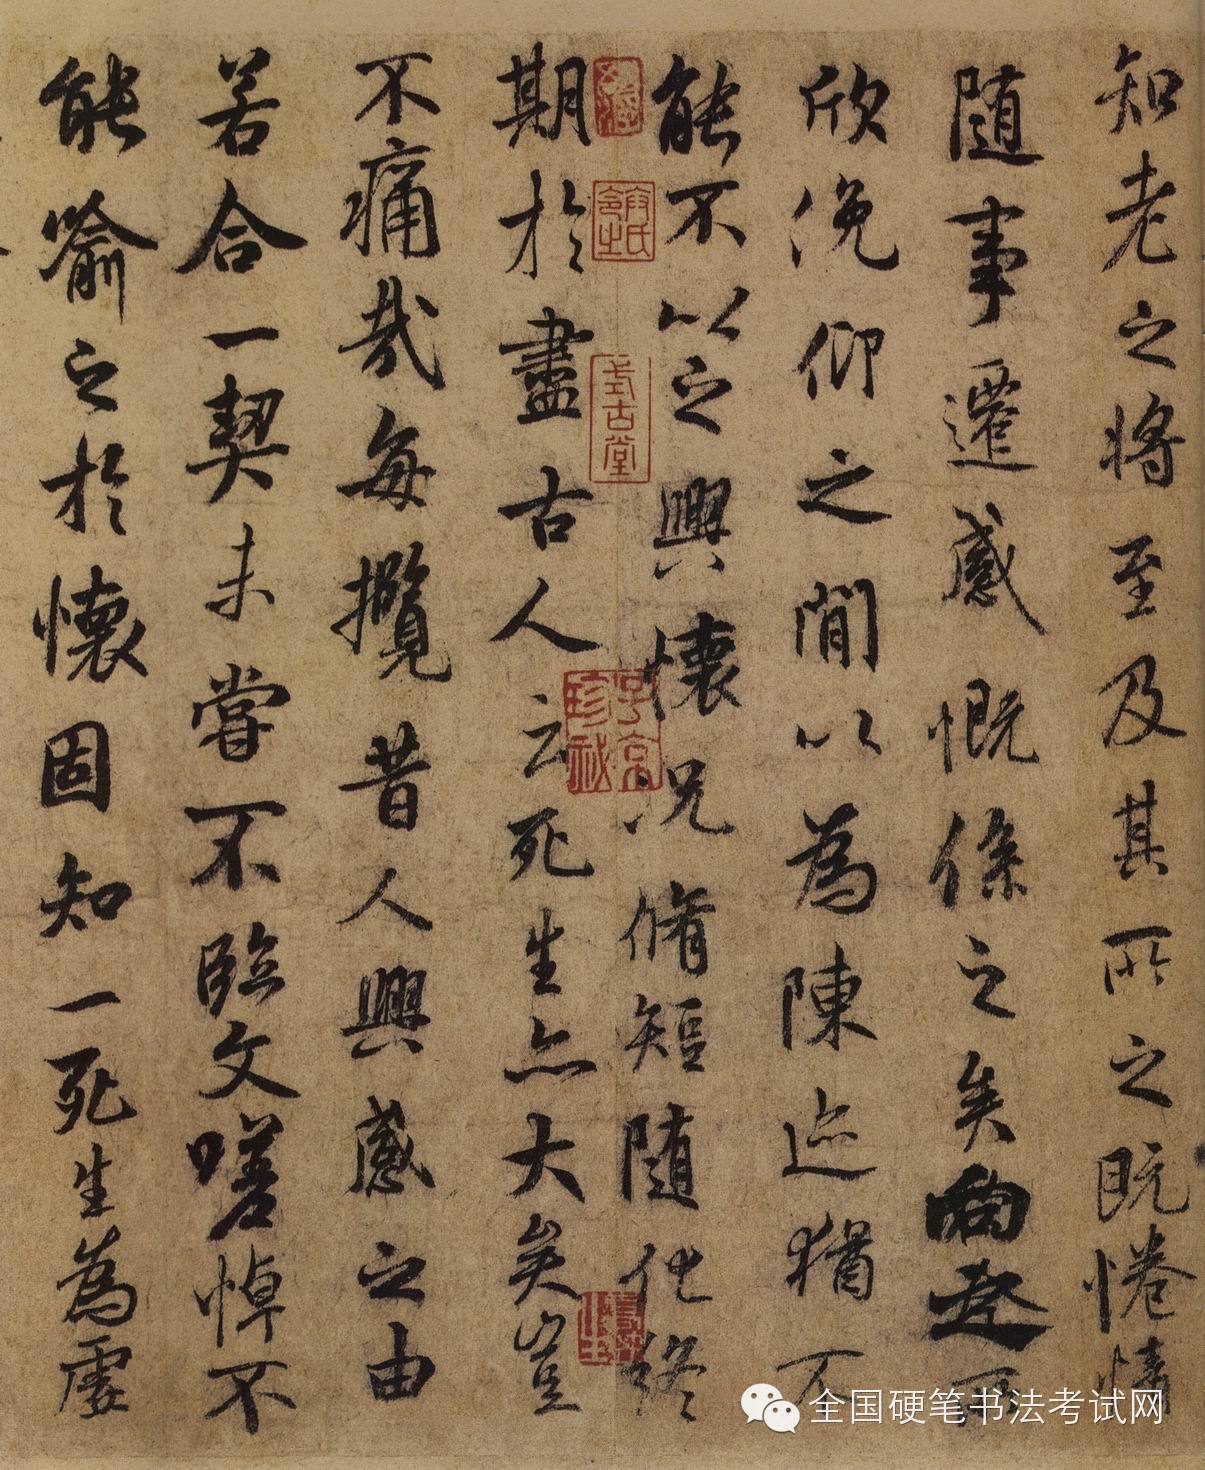 知老之将至及其所之既惓情
随事遷感慨係之矣向之所
欣俛仰之間以為陳迹猶不
能不以之興懷況脩短随化終
期於盡古人云死生亦大矣豈
不痛哉每攬昔人興感之由
若合一契未嘗不臨文嗟悼不
能喻之於懷固知一死生為虛
式古堂
子京
珍秘
全国硬笔书法考试网